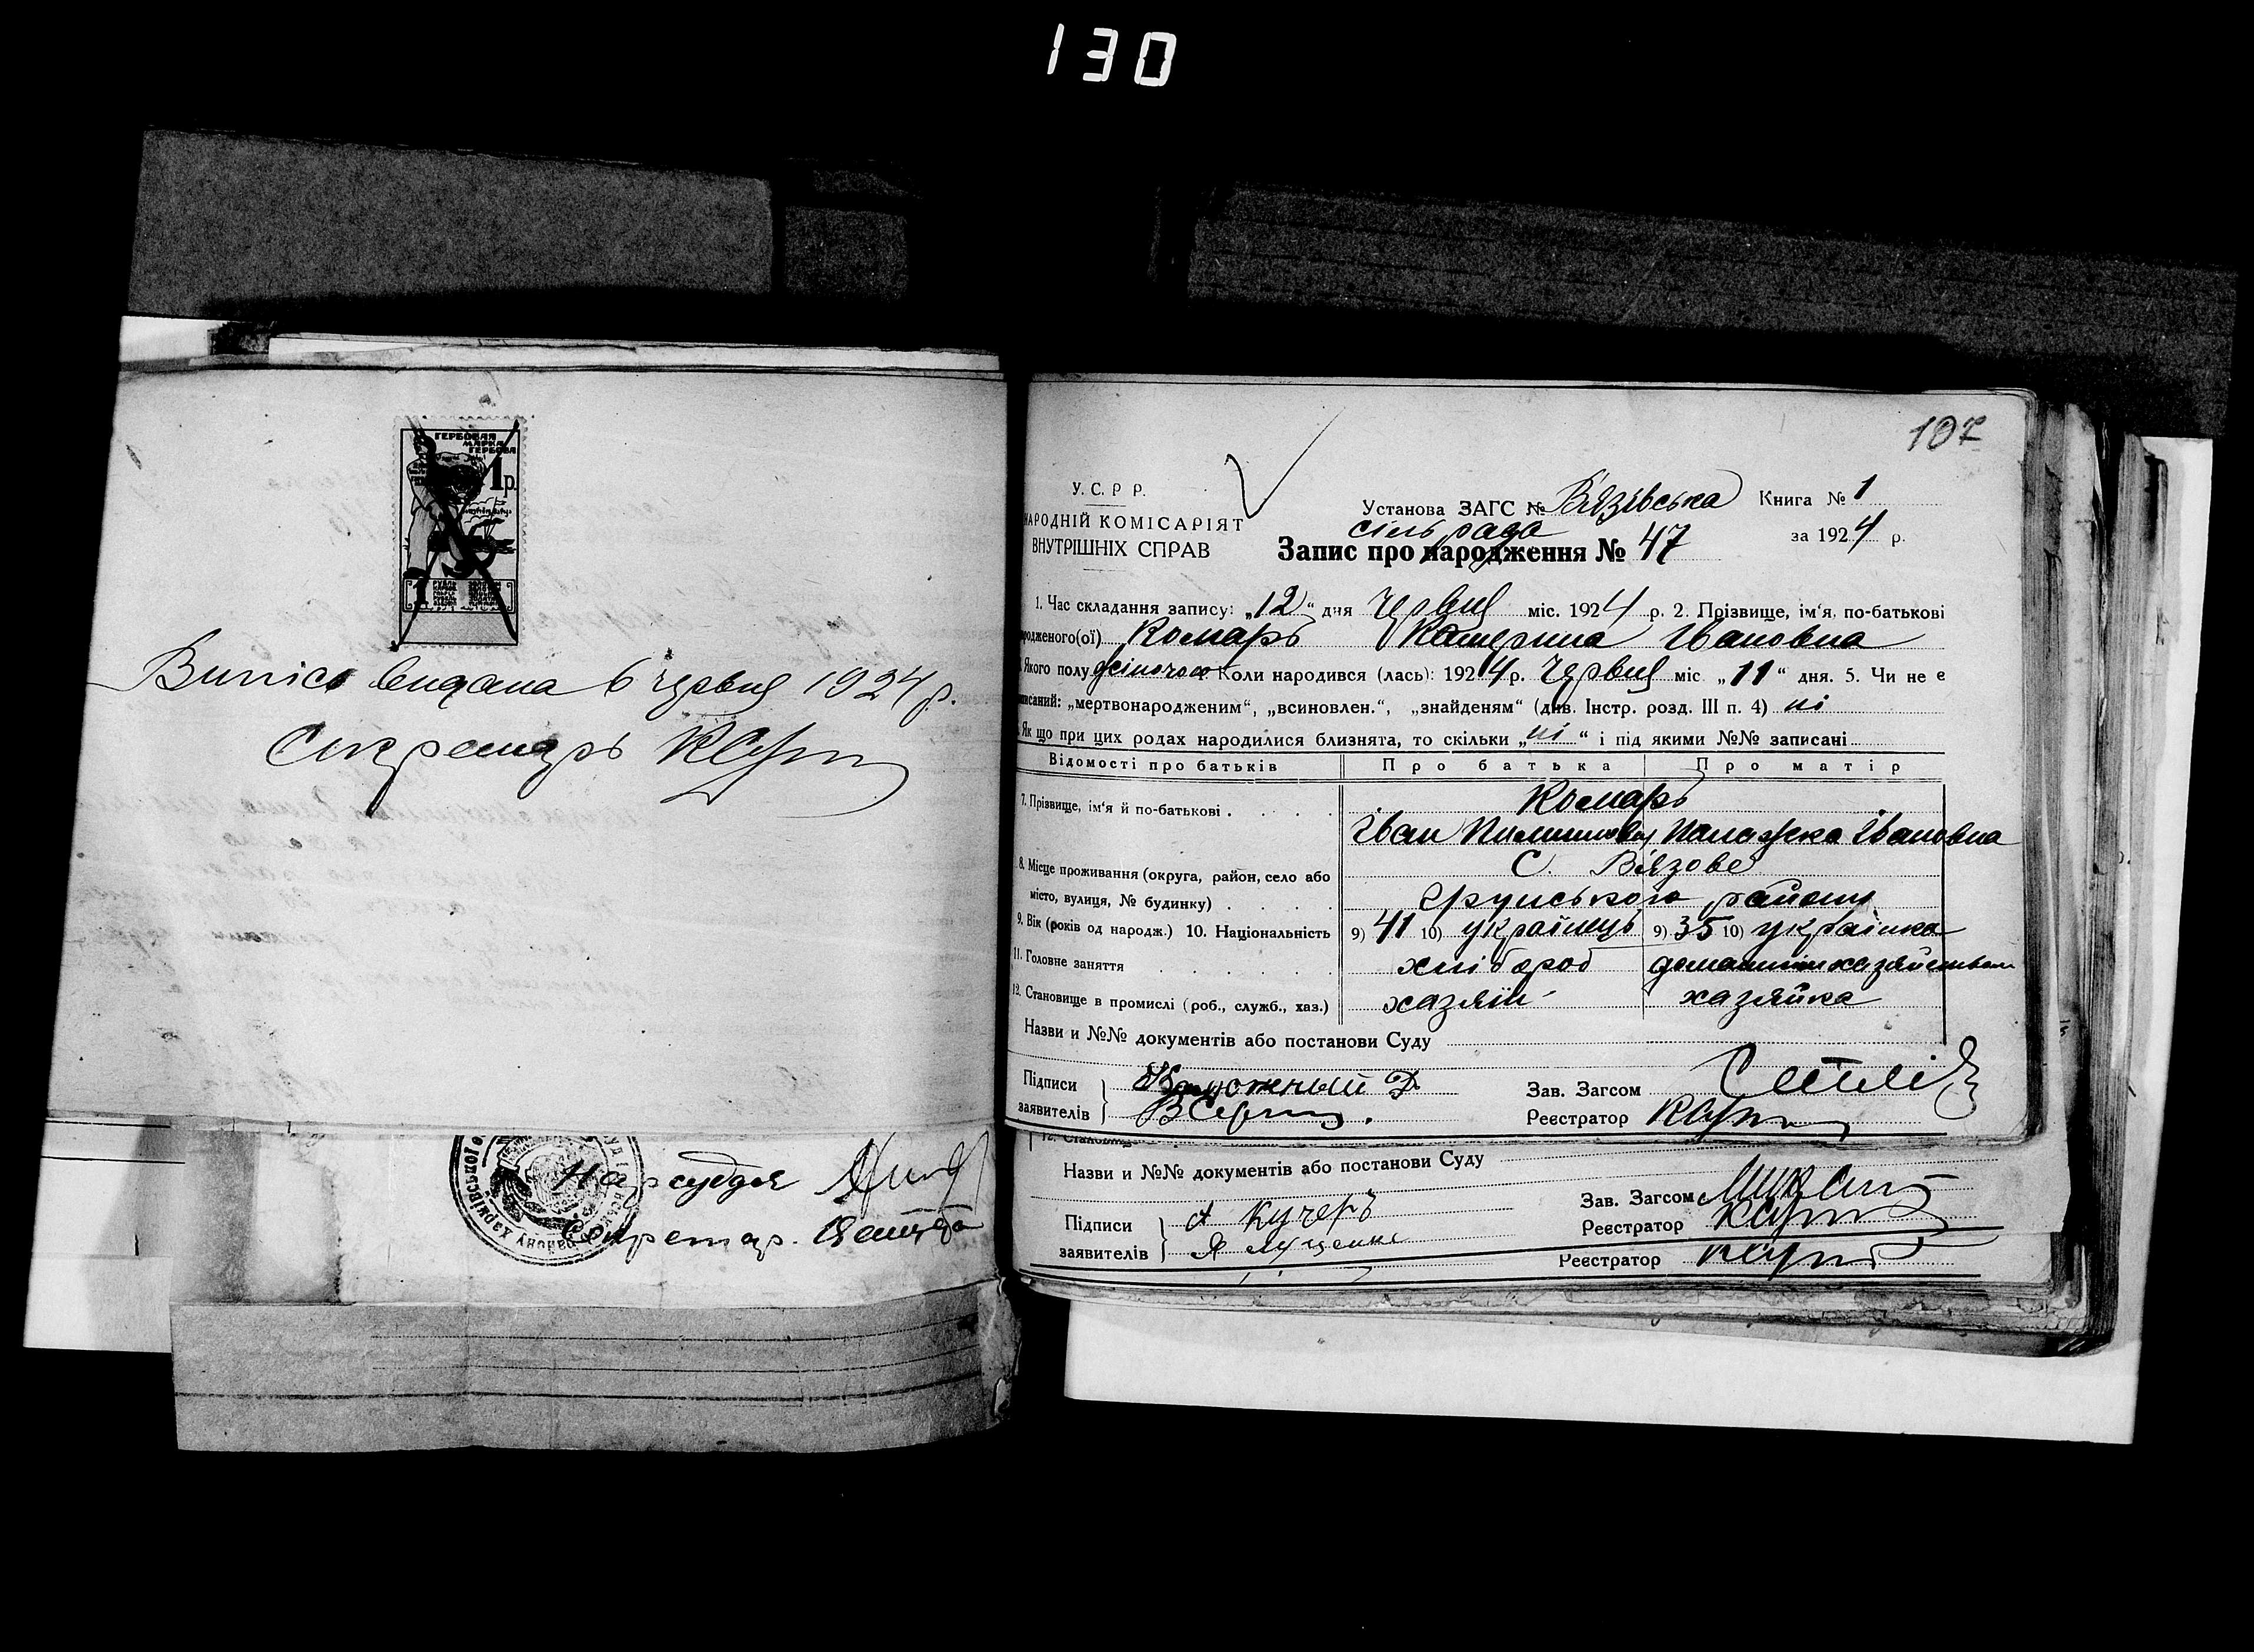 130
ГЕРБОВАЯ
МАРКА
ГЕРБОВА
1 р.
1
Випісь видана 6 червня 1924 р.
Секретарь
Нарсудья
Секретар.
107
У. С. Р Р.
НАРОДНІЙ КОМІСАРІЯТ
ВНУТРІШНІХ СПРАВ
Установа ЗАГС № Вязівська Книга № 1
сільрада
Запис про народження № 47 за 1924 р.
1. Час складання запису: „12“ дня червня міс. 1924 р. 2. Прізвище, ім'я, по-батькові
родженого(ої) Комарь Катерина Івановна
Якого полу жіночого Коли народився (лась): 1924 р. червня міс „11“ дня. 5. Чи не є
писаний: „мертвонародженим“, „всиновлен.“, „знайденям“ (див. Інстр. розд. III п. 4) ні
Як що при цих родах народилися близнята, то скільки „ні“ і під якими №№ записані
Відомості про батьків Про батька Про матір
7. Прізвище, ім'я й по-батькові . Комарь
Іван Пилипович Палажка Івановна
8. Місце проживання (округа, район, село або С. Вязове
місто, вулиця, № будинку) Грунського району
9. Вік (років од народж.) 10. Національність 9) 41 10) українець 9) 35 10) українка
11. Головне заняття хлібороб домашнім хазяйством
12. Становище в промислі (роб., служб., хаз.) хазяїн хазяйка
Назви и №№ документів або постанови Суду
Підписи Зав. Загсом
заявителів Реєстратор
Назви и №№ документів або постанови Суду
Зав. Загсом
Підписи Кучеръ Реєстратор
заявителів Я Луценко
Реєстратор